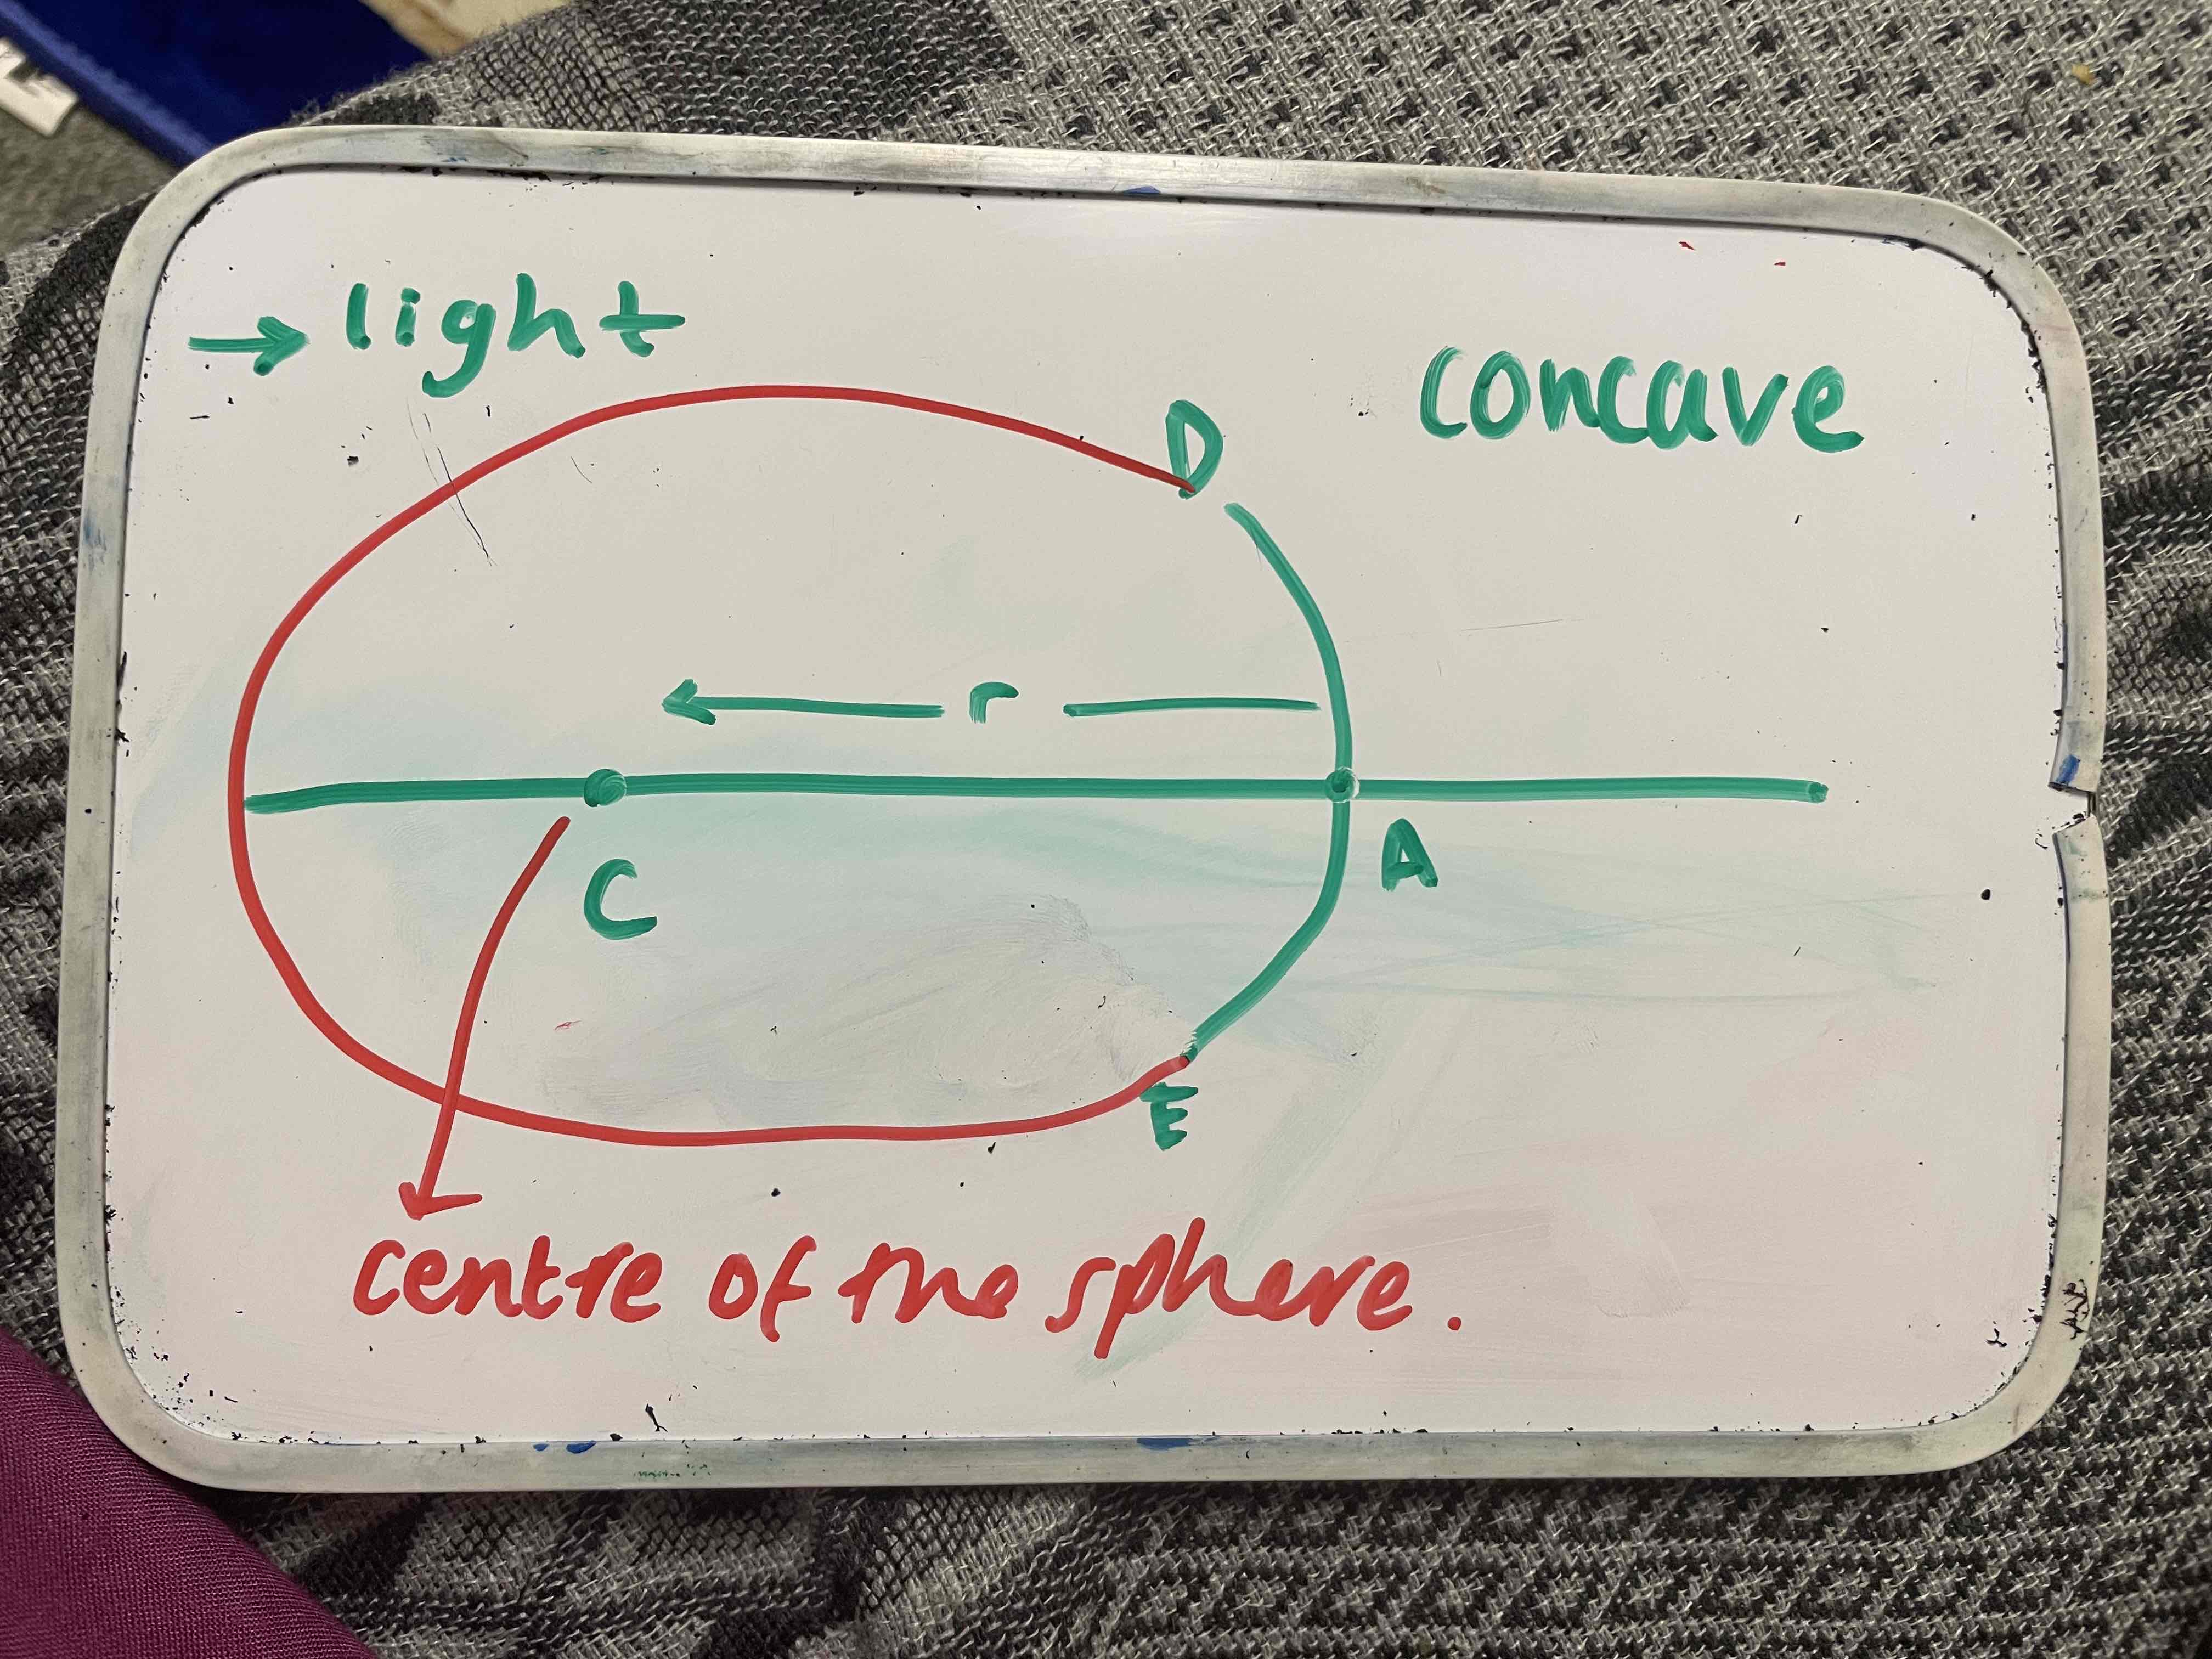 → light
concave
D
r
C
A
E
centre of the sphere.